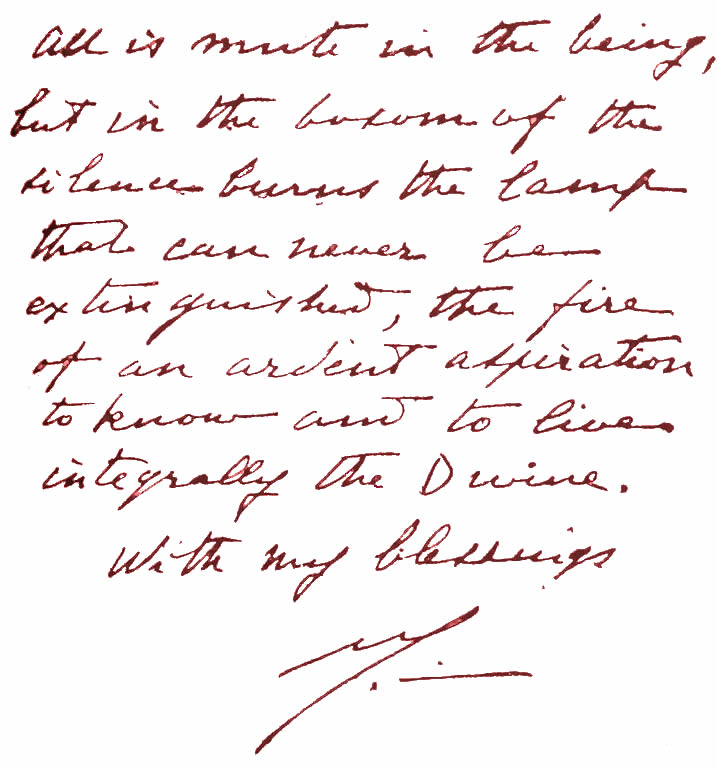 All is mute in the being,
but in the bosom of the
silence burns the lamp
that can never be
extinguished, the fire
of an ardent aspiration
to know and to live
integrally the Divine.
With my blessings